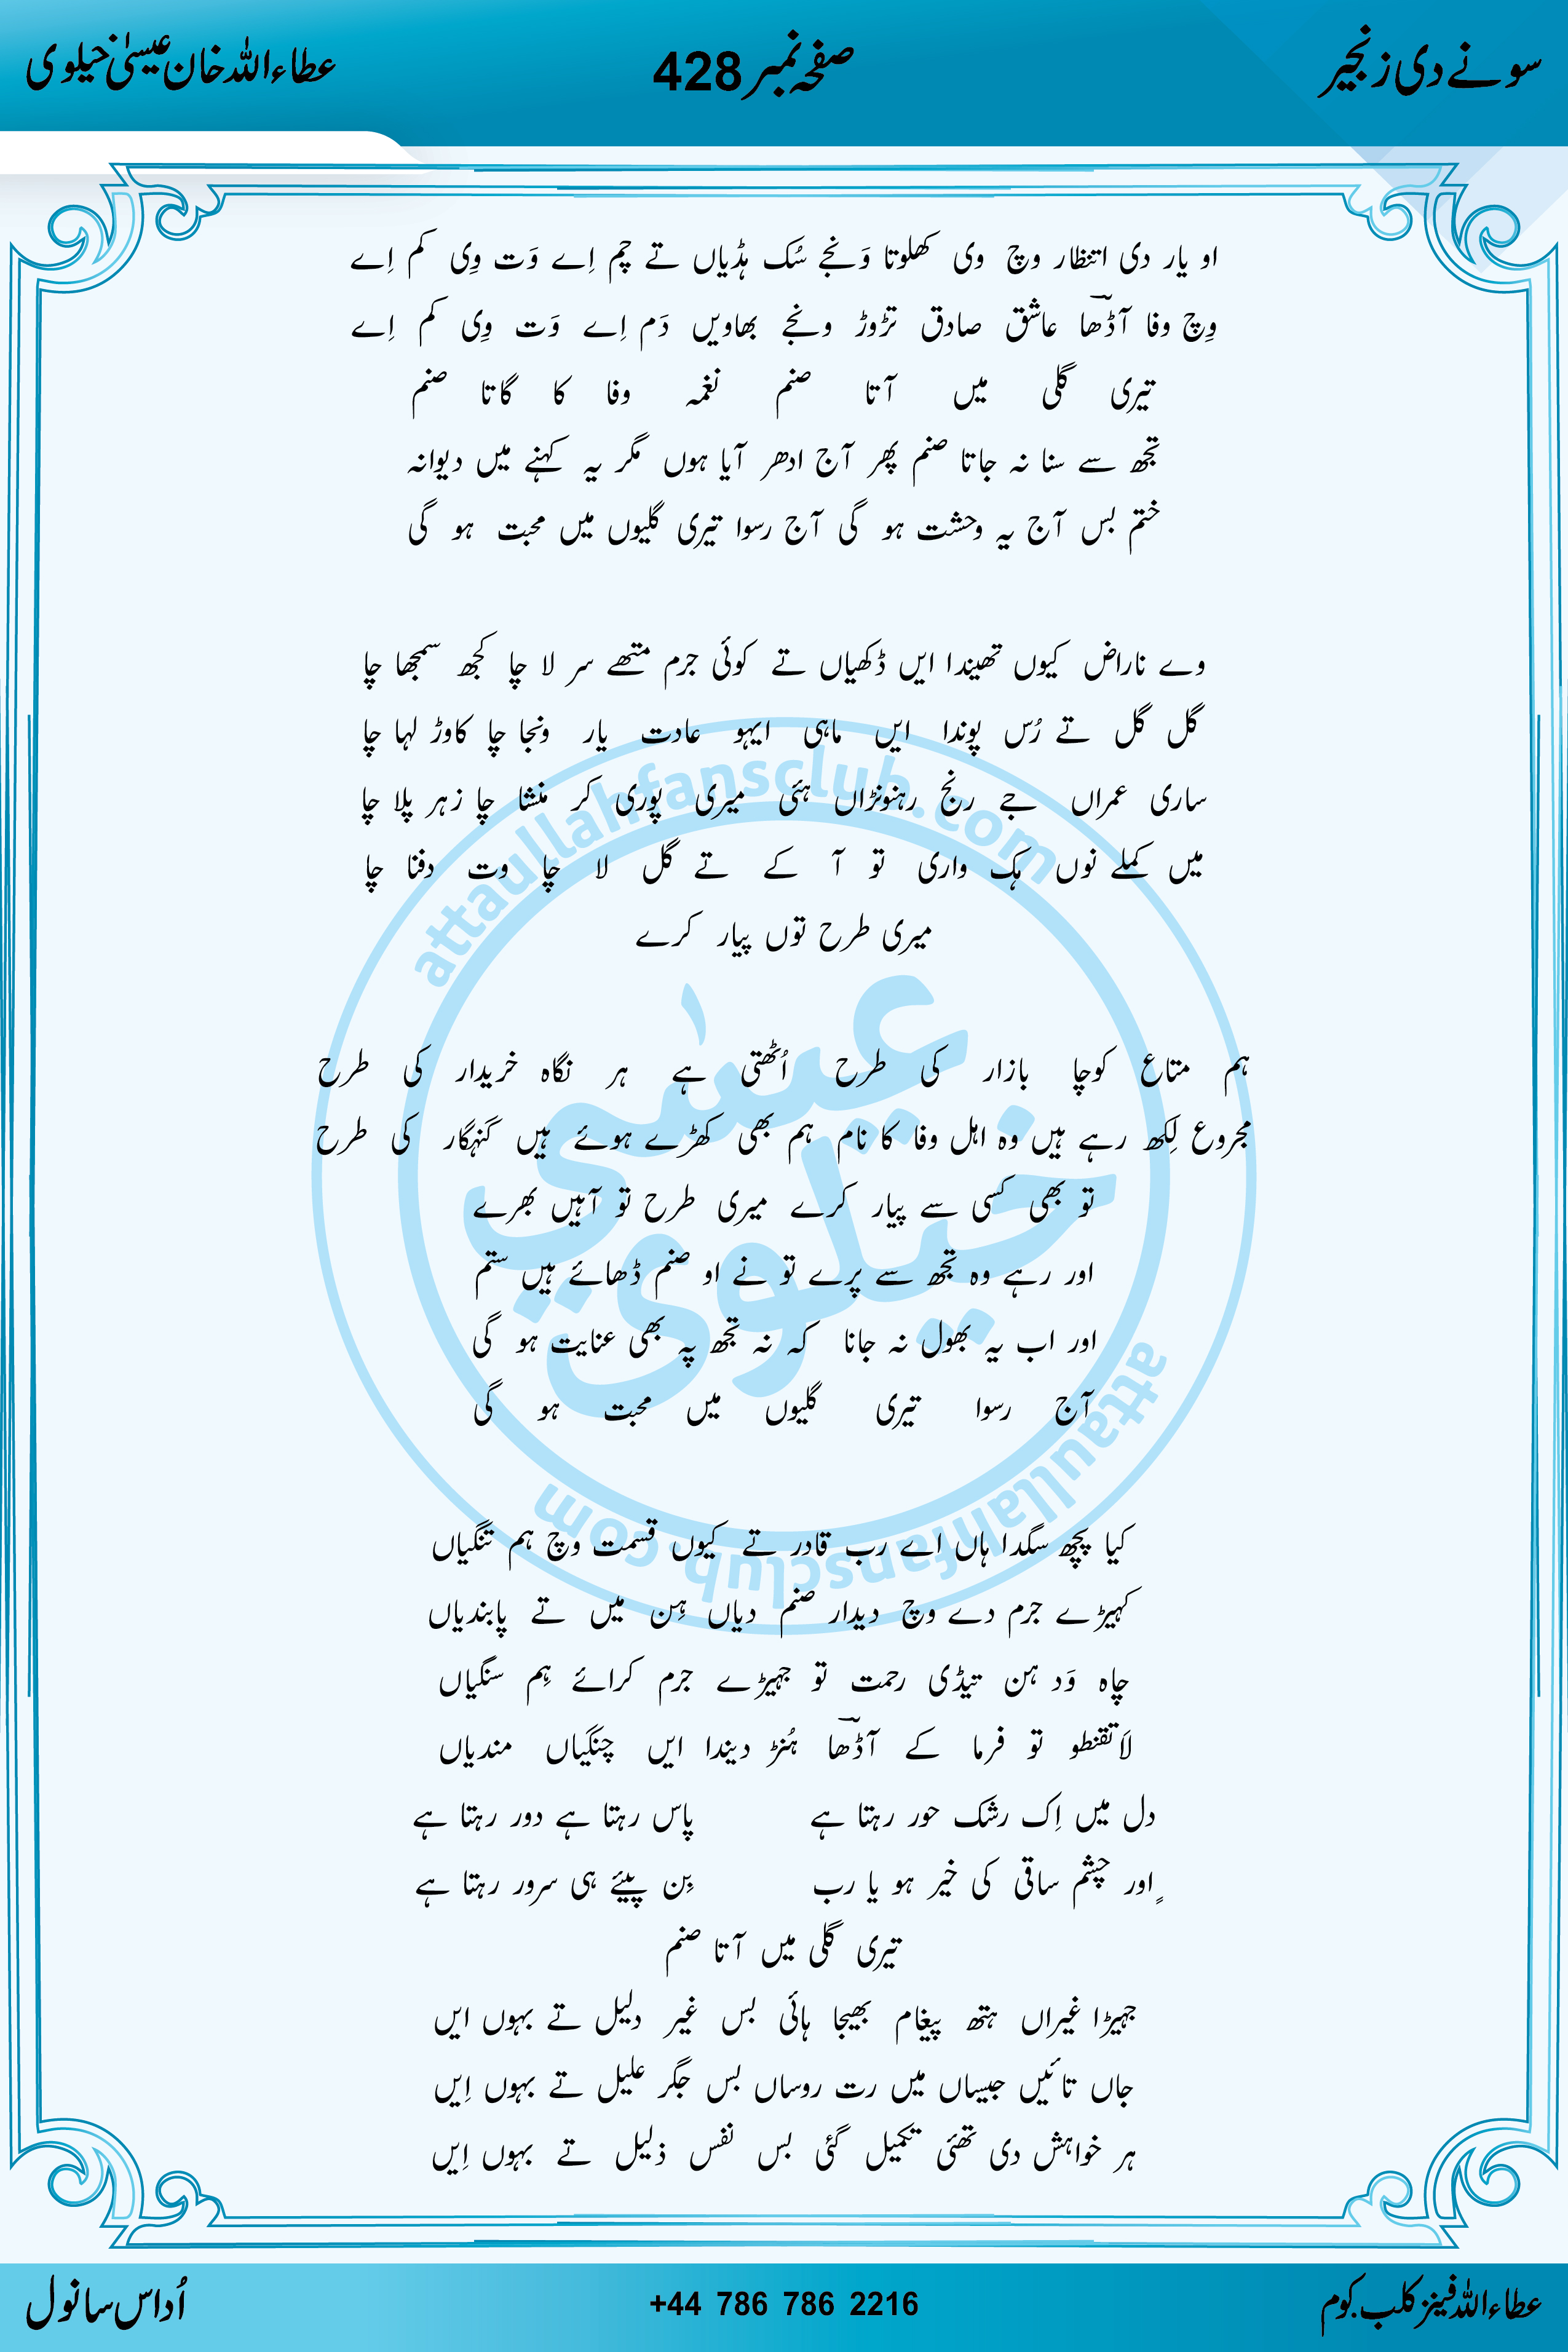 سونے دی زنجیر
صفحہ نمبر 428
عطاءاللہ خان عیسیٰ خیلوی
او یار دی انتظار وچ وی کھلوتا وَنجے سُک ہڈیاں تے چم اِے وَت وِی کم اِے
وِچ وفا آڈھا عاشق صادق تڑوڑ ونجے بھاویں دَم اِے وَت وِی کم اِے
تیری گلی میں آتا صنم نغمہ وفا کا گاتا صنم
تجھ سے سنا نہ جاتا صنم پھر آج ادھر آیا ہوں مگر یہ کہنے میں دیوانہ
ختم بس آج یہ وحشت ہو گی آج رسوا تیری گلیوں میں محبت ہو گی
وے ناراض کیوں تھیندا ایں ڈکھیاں تے کوئی جرم متھے سر لا چا کجھ سمجھا چا
گل گل تے رُس پوندا ایں ماہی ایہو عادت یار ونجا چا کاوڑ لہا چا
ساری عمراں جے رنج رہنونڑاں ہئی میری پوری کر منشا چا زہر پلا چا
میں کملے نوں ہک واری تو آ کے تے گل لا چا وت دفنا چا
میری طرح توں پیار کرے
ہم متاع کوچا بازار کی طرح اُٹھتی ہے ہر نگاہ خریدار کی طرح
مجروع لِکھ رہے ہیں وہ اہل وفا کا نام ہم بھی کھڑے ہوئے ہیں گنہگار کی طرح
تو بھی کسی سے پیار کرے میری طرح تو آہیں بھرے
اور رہے وہ تجھ سے پرے تو نے او صنم ڈھائے ہیں ستم
اور اب یہ بھول نہ جانا کہ نہ تجھ پہ بھی عنایت ہو گی
آج رسوا تیری گلیوں میں محبت ہو گی
کیا پچھ سگدا ہاں اے رب قادر تے کیوں قسمت وچ ہم تنگیاں
کہیڑے جرم دے وچ دیدار صنم دیاں ہِن میں تے پابندیاں
چاہ وَد ہن تیڈی رحمت تو جہیڑے جرم کرائے ہِم سنگیاں
لاَتقنطو تو فرما کے آڈھا ہُنڑ دیندا ایں چنگیاں مندیاں
دل میں اِک رشک حور رہتا ہے پاس رہتا ہے دور رہتا ہے
ٍاور چشم ساقی کی خیر ہو یا رب بِن پیئے ہی سرور رہتا ہے
تیری گلی میں آتا صنم
جہیڑا غیراں ہتھ پیغام بھیجا ہائی بس غیر دلیل تے بہوں ایں
جاں تائیں جیساں میں رت روساں بس جگر علیل تے بہوں اِیں
ہر خواہش دی تھئی تکمیل گئی بس نفس ذلیل تے بہوں اِیں
attaullahfansclub.com
عیسٰی
خیلوی
attaullahfansclub.com
عطاءاللہ فینز کلب.کوم
+44 786 786 2216
اُداس سانول